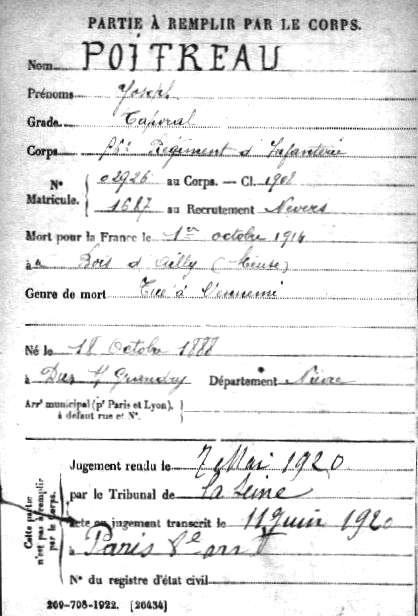 PARTIE À REMPLIR PAR LE CORPS.
Nom POITREAU
Prénoms Joseph
Grade Caporal
Corps Régiment d'Infanterie
N° Matricule. 02926 au Corps. — Cl. 1908
1687 au Recrutement Nevers
Mort pour la France le 1er octobre 1914
à Bois d'Ailly (Meuse)
Genre de mort Tué à l'ennemi
Né le 18 Octobre 1888
à Département Nièvre
Arrt municipal (pr Paris et Lyon),
à défaut rue et N°.
Jugement rendu le 7 Mai 1920
par le Tribunal de La Seine
acte ou jugement transcrit le 11 Juin 1920
à Paris
N° du registre d'état civil
Cette partie
n'est pas à remplir
par le Corps.
269-708-1922. [26434]